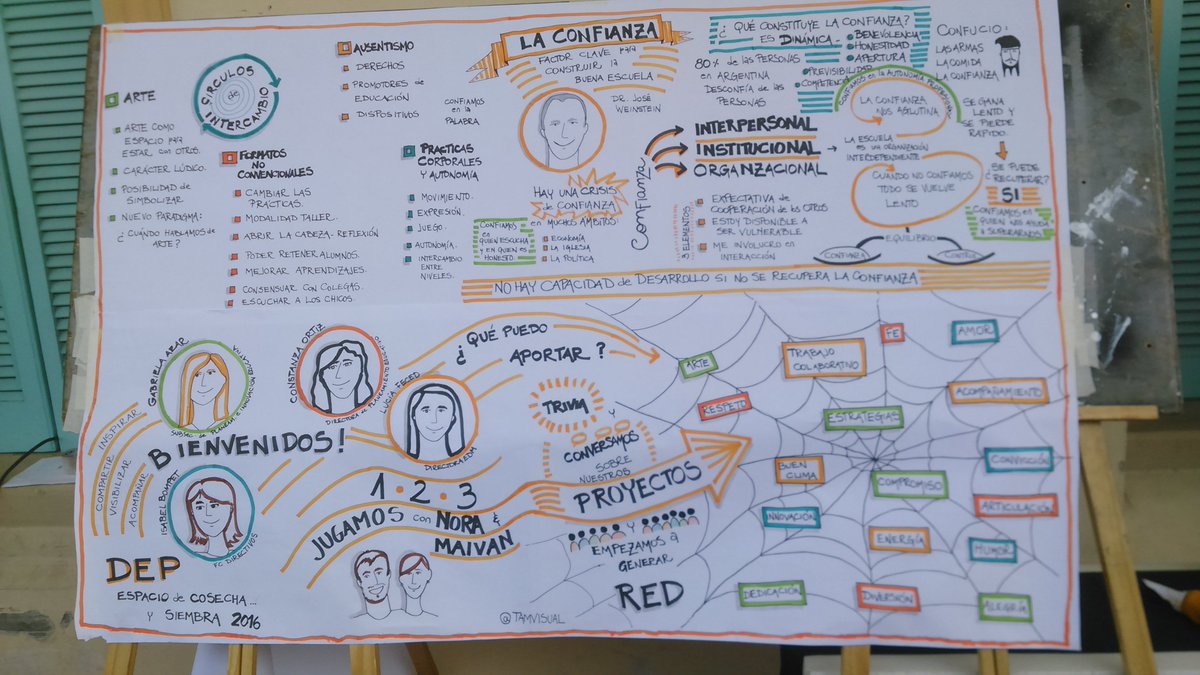 LA CONFIANZA
FACTOR CLAVE P/A
CONSTRUIR LA
BUENA ESCUELA
DR. JOSÉ
WEINSTEIN
CÍRCULOS
de
INTERCAMBIO
ARTE
ARTE COMO
ESPACIO P/A
ESTAR CON OTROS.
CARÁCTER LÚDICO.
POSIBILIDAD de
SIMBOLIZAR
NUEVO PARADIGMA:
¿CUÁNDO HABLAMOS de
ARTE?
FORMATOS
NO
CONVENCIONALES
CAMBIAR LAS
PRÁCTICAS.
MODALIDAD TALLER.
ABRIR LA CABEZA - REFLEXIÓN
PODER RETENER ALUMNOS.
MEJORAR APRENDIZAJES.
CONSENSUAR CON COLEGAS.
ESCUCHAR A LOS CHICOS.
AUSENTISMO
DERECHOS
PROMOTORES de
EDUCACIÓN
DISPOSITIVOS
PRÁCTICAS
CORPORALES
Y AUTONOMÍA
MOVIMIENTO.
EXPRESIÓN.
JUEGO
AUTONOMÍA.
INTERCAMBIO
ENTRE
NIVELES.
CONFIAMOS
en LA
PALABRA
HAY UNA CRISIS
de CONFIANZA
en MUCHOS ÁMBITOS.
ECONOMÍA
LA IGLESIA
LA POLÍTICA
CONFIAMOS en
QUIEN ESCUCHA
y EN QUIEN ES
HONESTO.
80% de LAS PERSONAS
en ARGENTINA
DESCONFÍA de LAS
PERSONAS
CONFIANZA
INTERPERSONAL
INSTITUCIONAL
ORGANZACIONAL
3 ELEMENTOS
EXPECTATIVA de
COOPERACIÓN de los OTROS
ESTOY DISPONIBLE A
SER VULNERABLE
ME INVOLUCRO en
INTERACCIÓN
¿QUÉ CONSTITUYE LA CONFIANZA?
ES DINÁMICA
BENEVOLENCIA
HONESTIDAD
APERTURA
PREVISIBILIDAD
COMPETENCIA
CONFIAMOS en LA AUTONOMÍA PROFESIONAL
LA CONFIANZA
NOS AGLUTINA
LA ESCUELA
ES UNA ORGANIZACIÓN
INTERDEPENDIENTE
CUANDO NO CONFIAMOS
TODO SE VUELVE
LENTO
EQUILIBRIO
CONFIANZA
CONTROL
CONFUCIO:
LAS ARMAS
LA COMIDA
LA CONFIANZA
SE GANA
LENTO y
SE PIERDE
RÁPIDO.
SE PUEDE
¿RECUPERAR?
SI
CONFIAMOS en
QUIEN NOS AYUDA
NO HAY CAPACIDAD de DESARROLLO SI NO SE RECUPERA LA CONFIANZA
GABRIELA AZAR
SUBSEC. de PLANEAM. E INNOVACIÓN EDUCATIVA
CONSTANZA ORTIZ
DIRECTORA de PLANEAMIENTO EDUCATIVO
LUCÍA FECED
DIRECTORA EDM
ISABEL BOMPET
FC DIRECTIVOS
INSPIRAR
COMPARTIR
VISIBILIZAR
ACOMPAÑAR
BIENVENIDOS!
DEP
ESPACIO de COSECHA...
Y SIEMBRA 2016
1·2·3
JUGAMOS con NORA &
MAIVAN
¿QUÉ PUEDO
APORTAR?
TRIVIA
Y
CONVERSAMOS
SOBRE
NUESTROS
PROYECTOS
Y
EMPEZAMOS A
GENERAR
RED
@TAMVISUAL
FE
AMOR
ARTE
TRABAJO
COLABORATIVO
ACOMPAÑAMIENTO
RESPETO
ESTRATEGIAS
CONVICCIÓN
BUEN
CLIMA
COMPROMISO
ARTICULACIÓN
INNOVACIÓN
ENERGÍA
HUMOR
DEDICACIÓN
DIVERSIÓN
ALEGRÍA